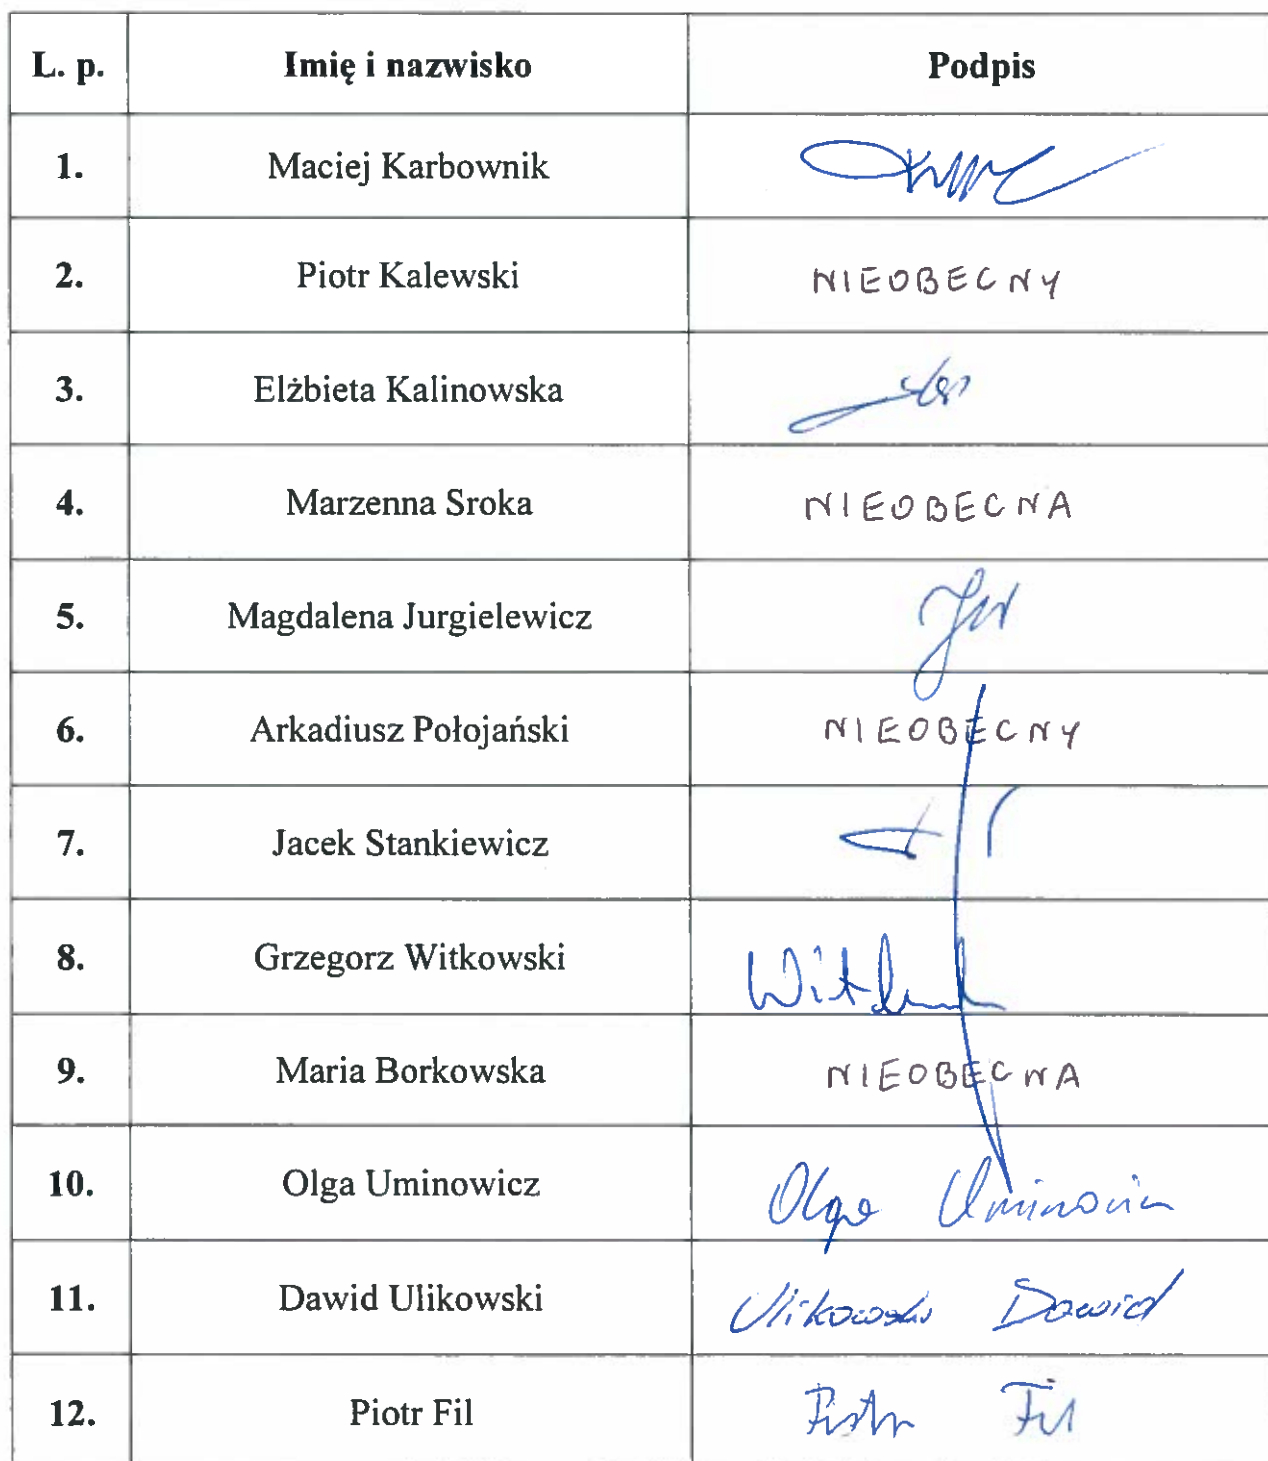 L. p. Imię i nazwisko Podpis
1. Maciej Karbownik
2. Piotr Kalewski NIEOBECNY
3. Elżbieta Kalinowska
4. Marzenna Sroka NIEOBECNA
5. Magdalena Jurgielewicz
6. Arkadiusz Połojański NIEOBECNY
7. Jacek Stankiewicz
8. Grzegorz Witkowski
9. Maria Borkowska NIEOBECNA
10. Olga Uminowicz Olga Uminowicz
11. Dawid Ulikowski Ulikowski Dawid
12. Piotr Fil Piotr Fil